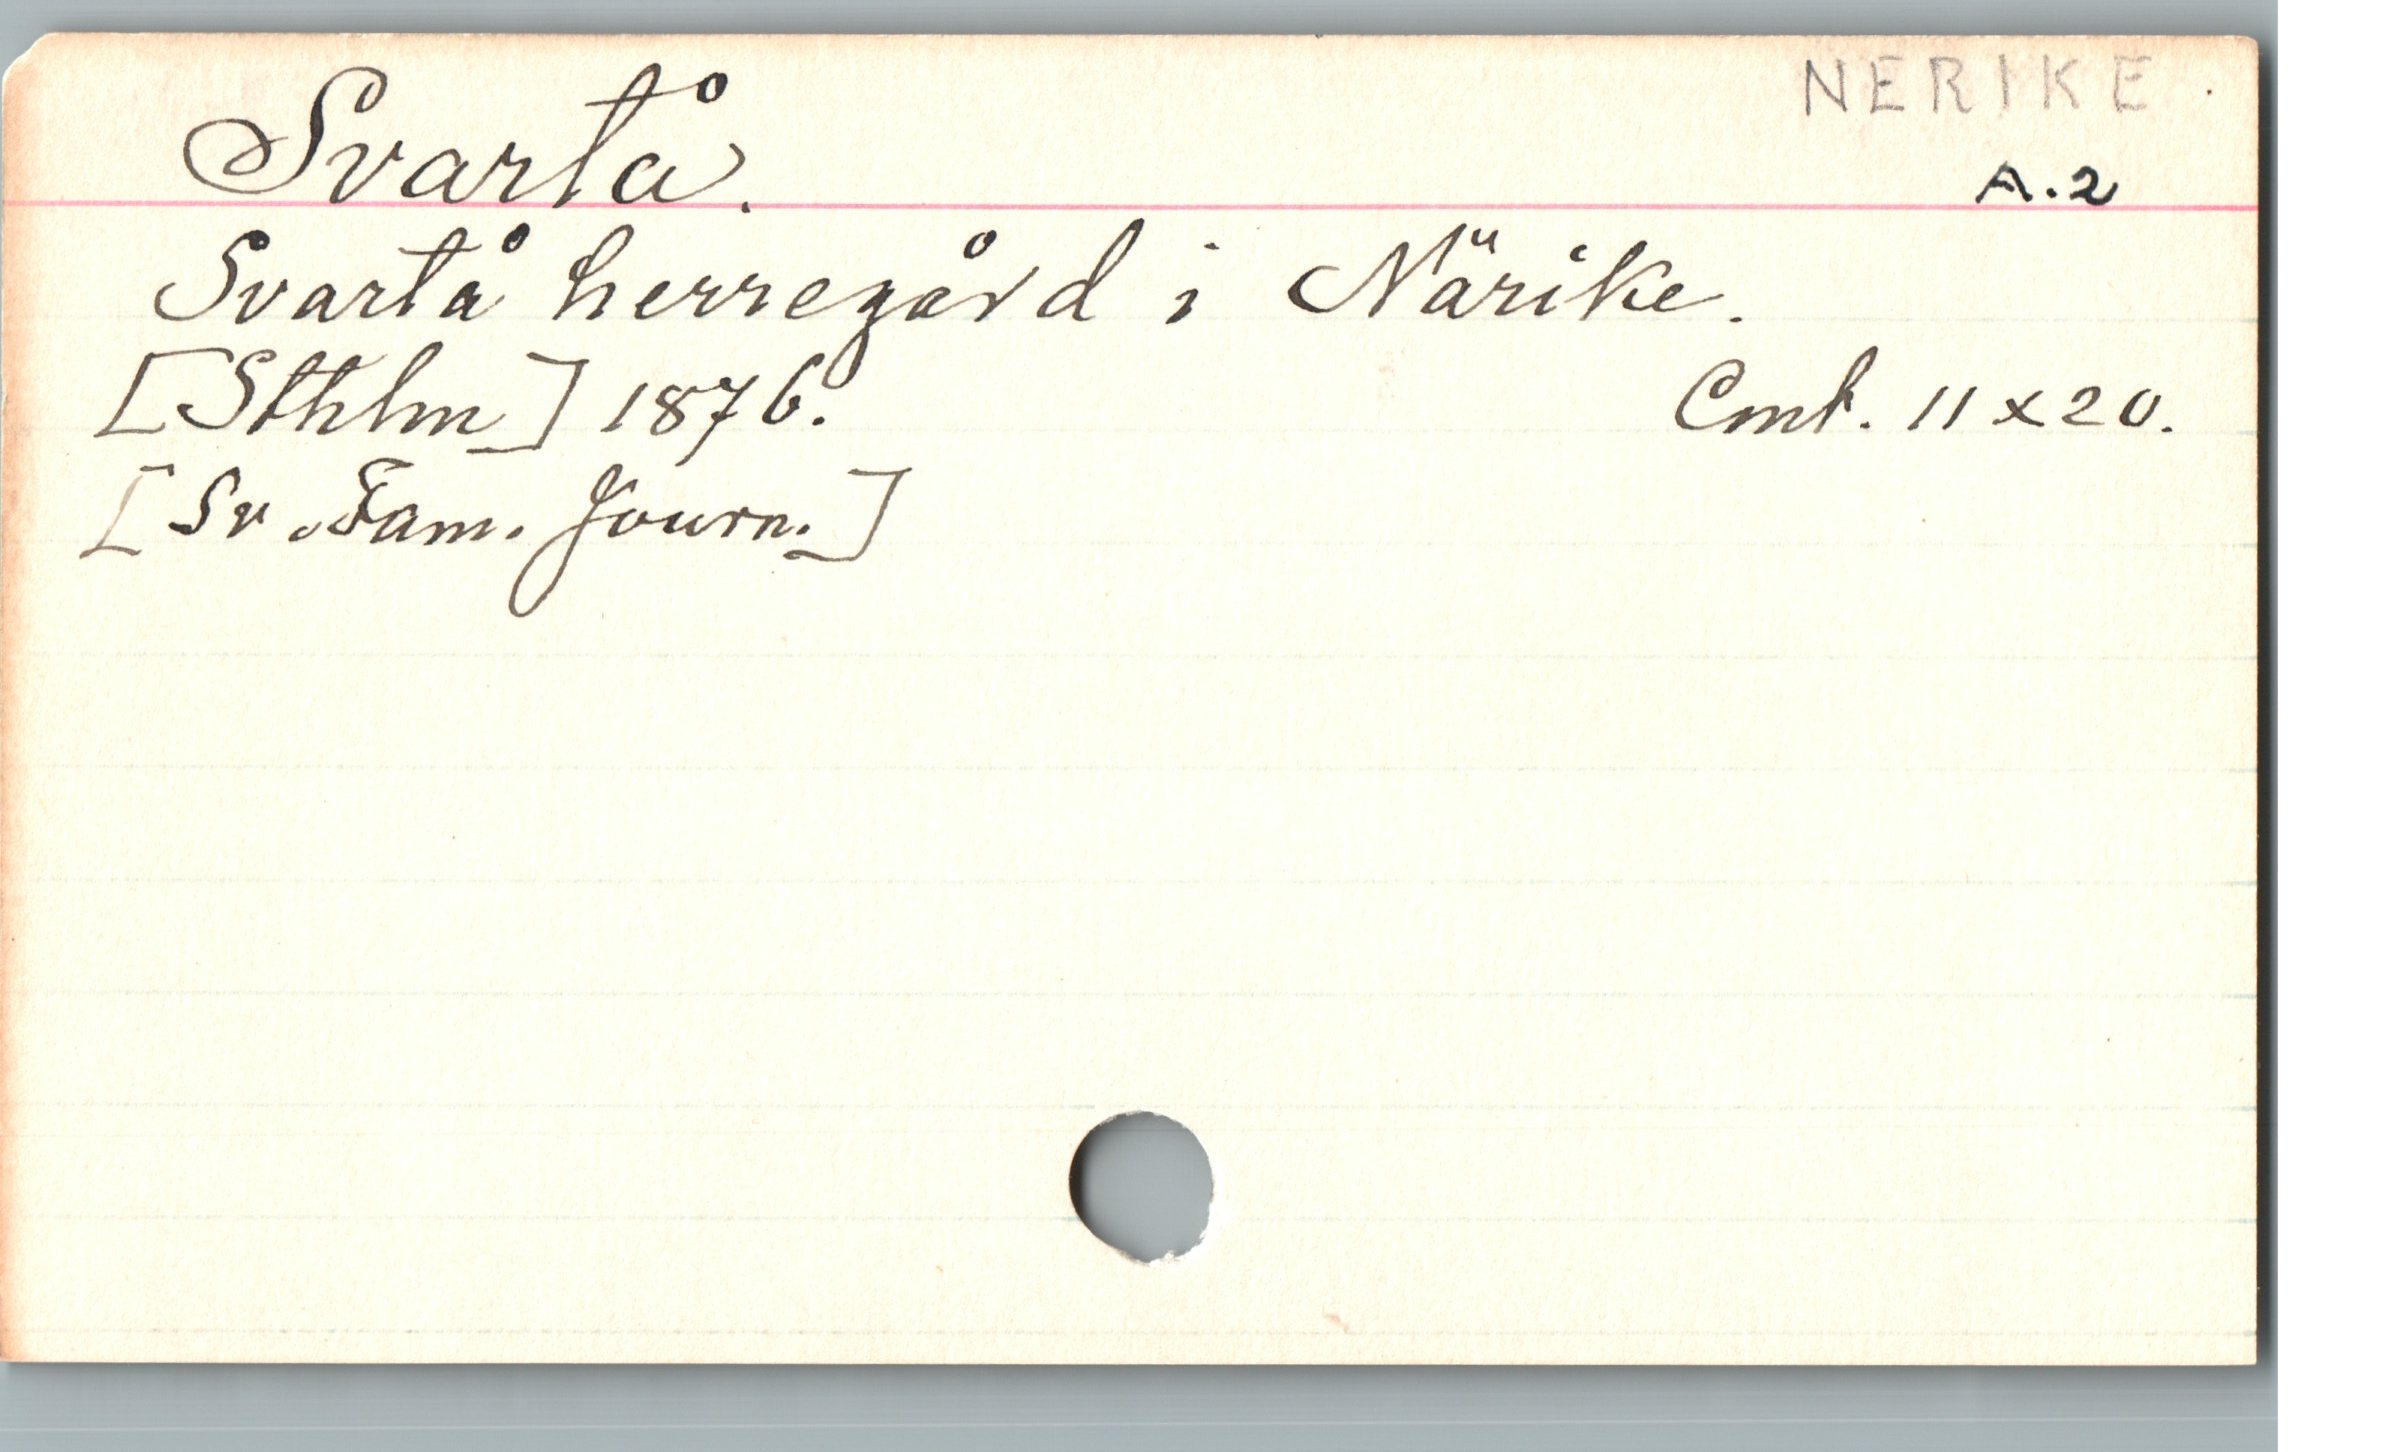 NERIKE
Svartå.
A.2
Svartå herregård i Närike.
[Sthlm] 1876. Cmt. 11 x 20.
[Sv. Fam. Journ.]